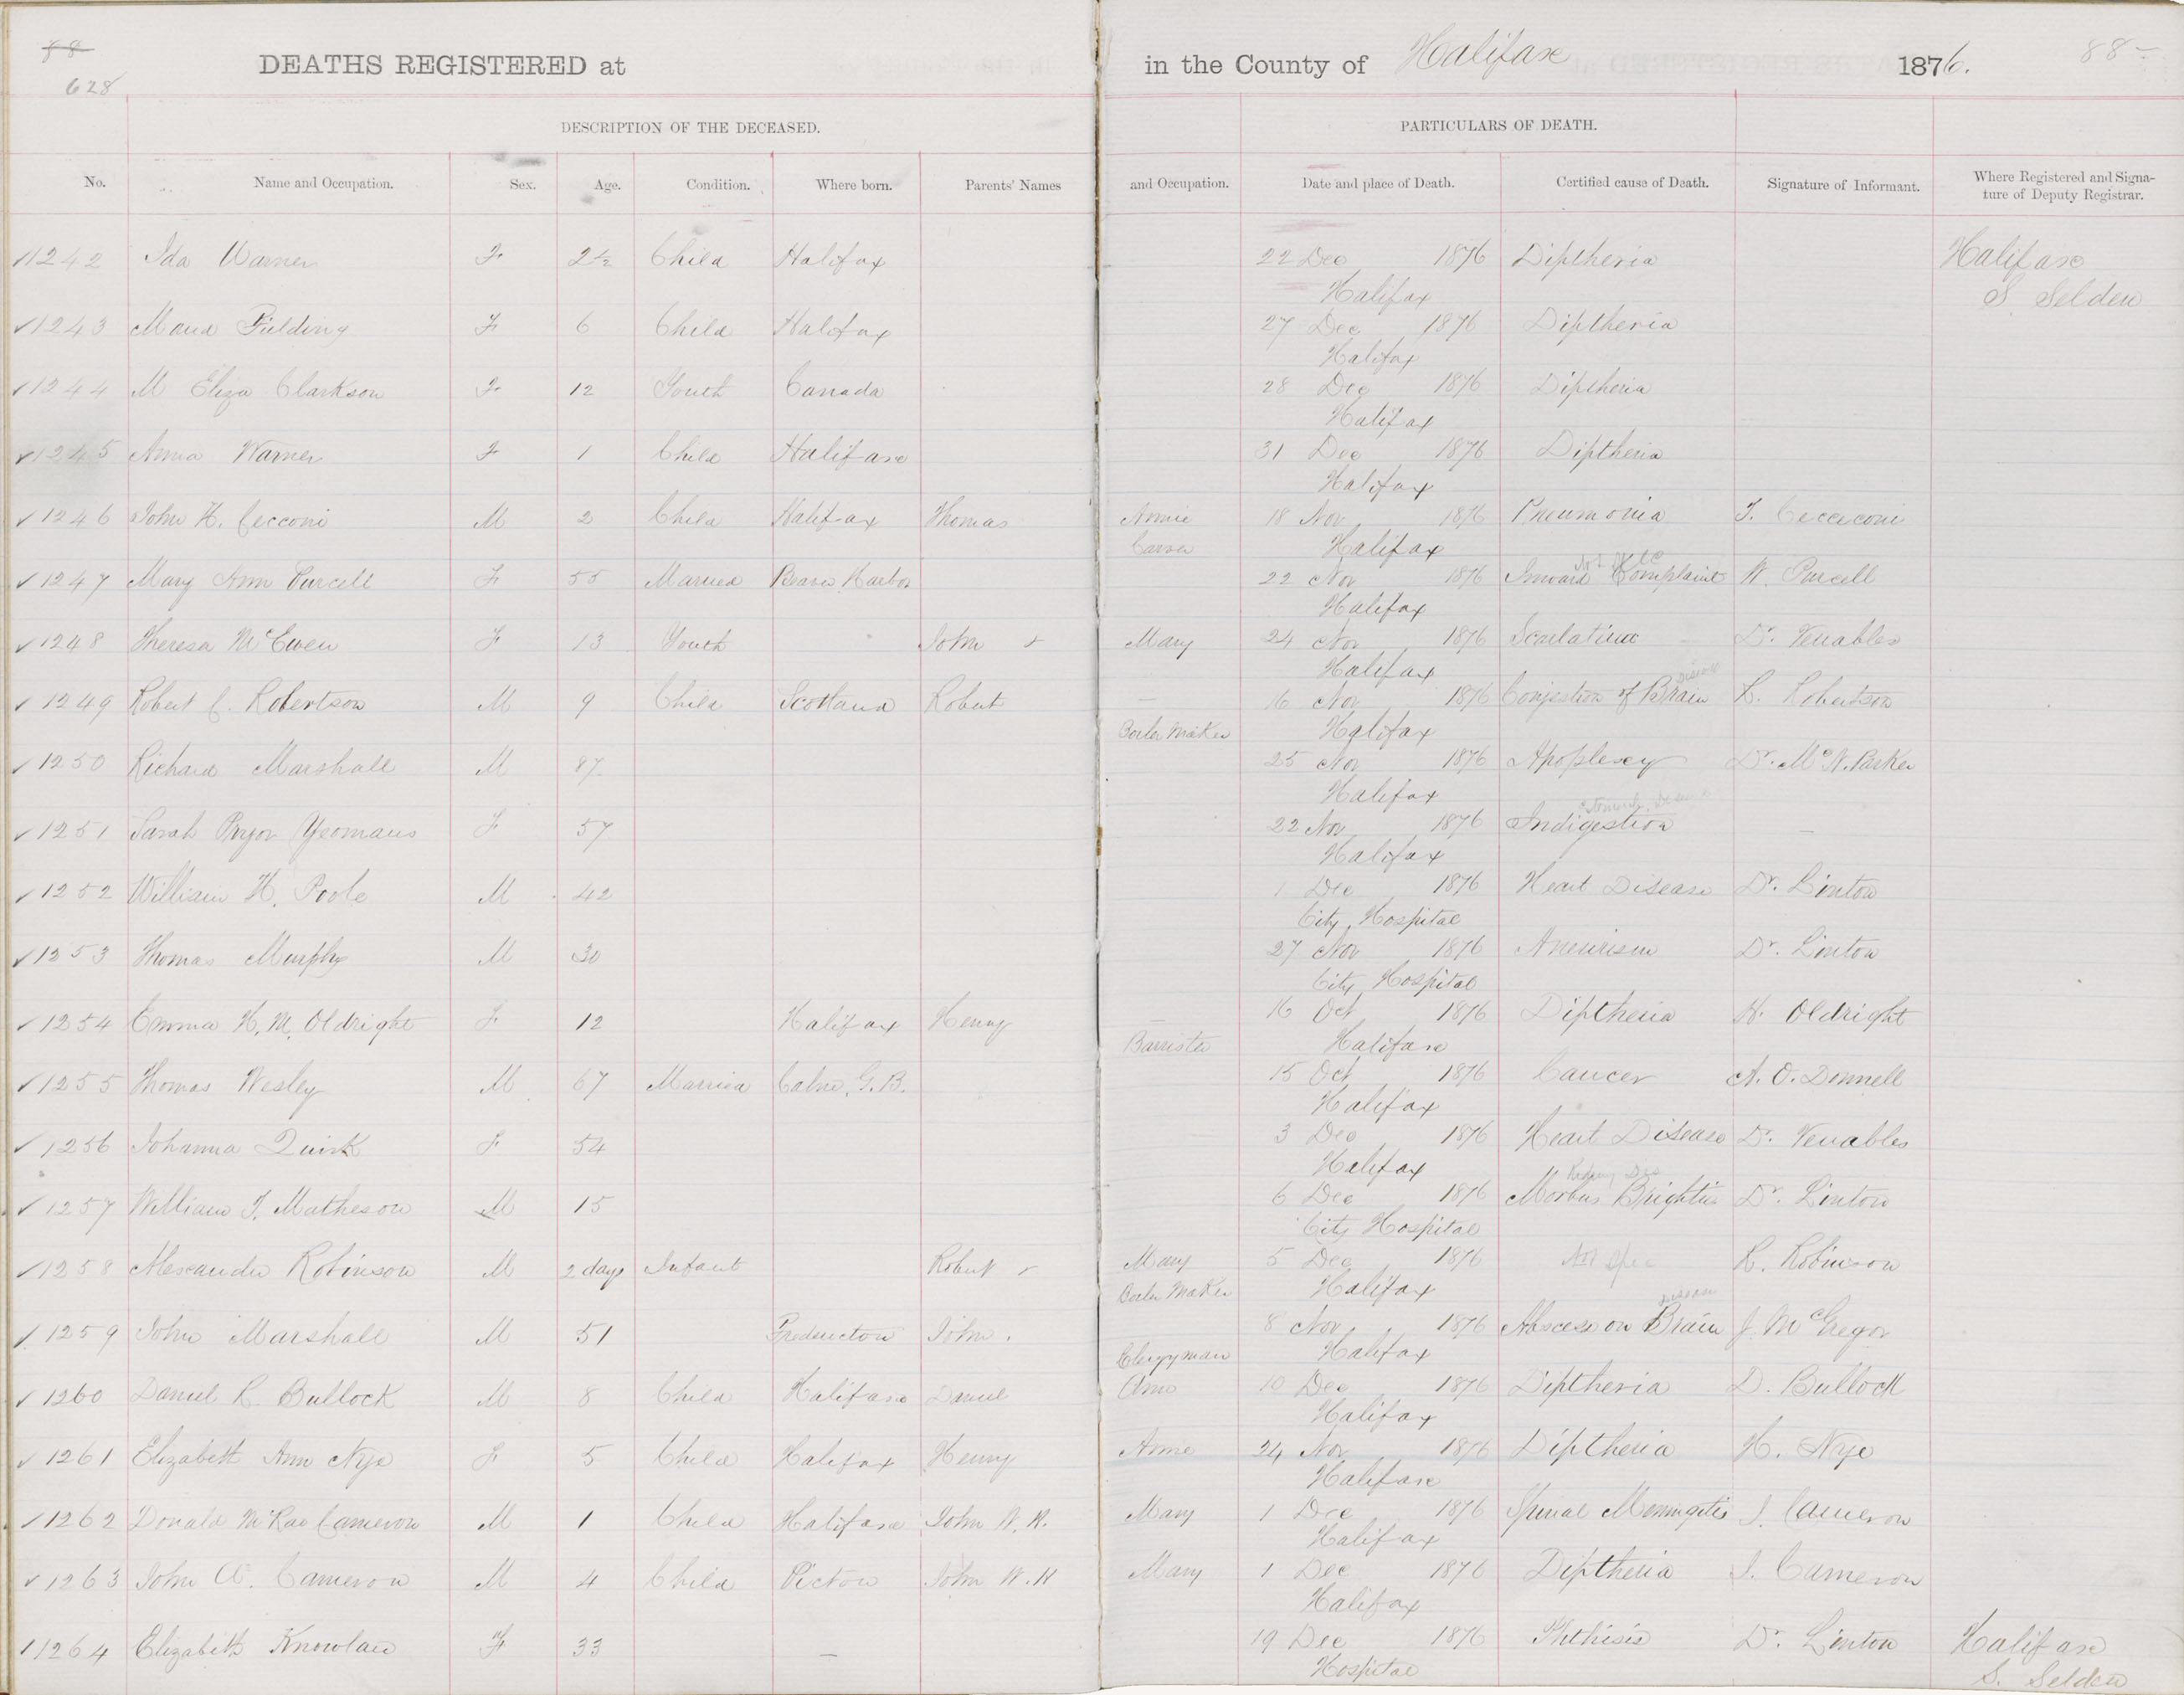 88
628
DEATHS REGISTERED at in the County of Halifax 1876. 88
DESCRIPTION OF THE DECEASED. PARTICULARS OF DEATH.
No. Name and Occupation. Sex. Age. Condition. Where born. Parents' Names and Occupation. Date and place of Death. Certified cause of Death. Signature of Informant. Where Registered and Signa-
ture of Deputy Registrar.
1242 Ida Warner F 2½ Child Halifax 22 Dec 1876 Diptheria Halifax
Halifax S Selden
1243 Maud Fielding F 6 Child Halifax 27 Dec 1876 Diptheria
Halifax
1244 M Eliza Clarkson F 12 Youth Canada 28 Dec 1876 Diptheria
Halifax
1245 Anna Warner F 1 Child Halifax 31 Dec 1876 Diptheria
Halifax
1246 John H. Cecconi M 2 Child Halifax Thomas Annie 18 Nov 1876 Pneumonia T. Ceccconi
Carver Halifax
Not Spec
1247 Mary Ann Purcell F 55 Married Beaver Harbor 22 Nov 1876 Inward Complaint W. Purcell
Halifax
1248 Theresa McEwen F 13 Youth John + Mary 24 Nov 1876 Scarlatina Dr. Venables
Halifax
Disease
1249 Robert C. Robertson M 9 Child Scotland Robert — 16 Nov 1876 Congestion of Brain R. Robertson
Boiler Maker Halifax
1250 Richard Marshall M 87 25 Nov 1876 Apoplexy Dr. McN. Parker
Halifax
Stomach Disease
1251 Sarah Pryor Yeomans F 57 22 Nov 1876 Indigestion —
Halifax
1252 William H. Poole M 42 1 Dec 1876 Heart Disease Dr. Linton
City Hospital
1253 Thomas Murphy M 30 27 Nov 1876 Aneurism Dr. Linton
City Hospital
1254 Emma H. M. Oldright F 12 Halifax Henry — 16 Oct 1876 Diptheria H. Oldright
Barrister Halifax
1255 Thomas Wesley M 67 Married Calne, G.B. 15 Oct 1876 Cancer A. O. Donnell
Halifax
1256 Johanna Quirk F 54 3 Dec 1876 Heart Disease Dr. Venables
Halifax
Kidney Dis
1257 William J. Matheson M 15 6 Dec 1876 Morbus Brightis Dr. Linton
City Hospital
1258 Alexander Robinson M 2 days Infant Robert + Mary 5 Dec 1876 Not Spec R. Robinson
Boiler Maker Halifax
disease
1259 John Marshall M 51 Fredericton John 8 Nov 1876 Abscess on Brain J. McGregor
Clergyman Halifax
1260 Daniel R. Bullock M 8 Child Halifax Daniel Ann 10 Dec 1876 Diptheria D. Bullock
Halifax
1261 Elizabeth Ann Nye F 5 Child Halifax Henry Anne 24 Nov 1876 Diptheria H. Nye
Halifax
1262 Donald McRae Cameron M 1 Child Halifax John W. H. Mary 1 Dec 1876 Spinal Meningitis J. Cameron
Halifax
1263 John A. Cameron M 4 Child Pictou John W. H Mary 1 Dec 1876 Diptheria J. Cameron
Halifax
1264 Elizabeth Knowlan F 33 — 19 Dec 1876 Phthisis Dr. Linton Halifax
Hospital S. Selden